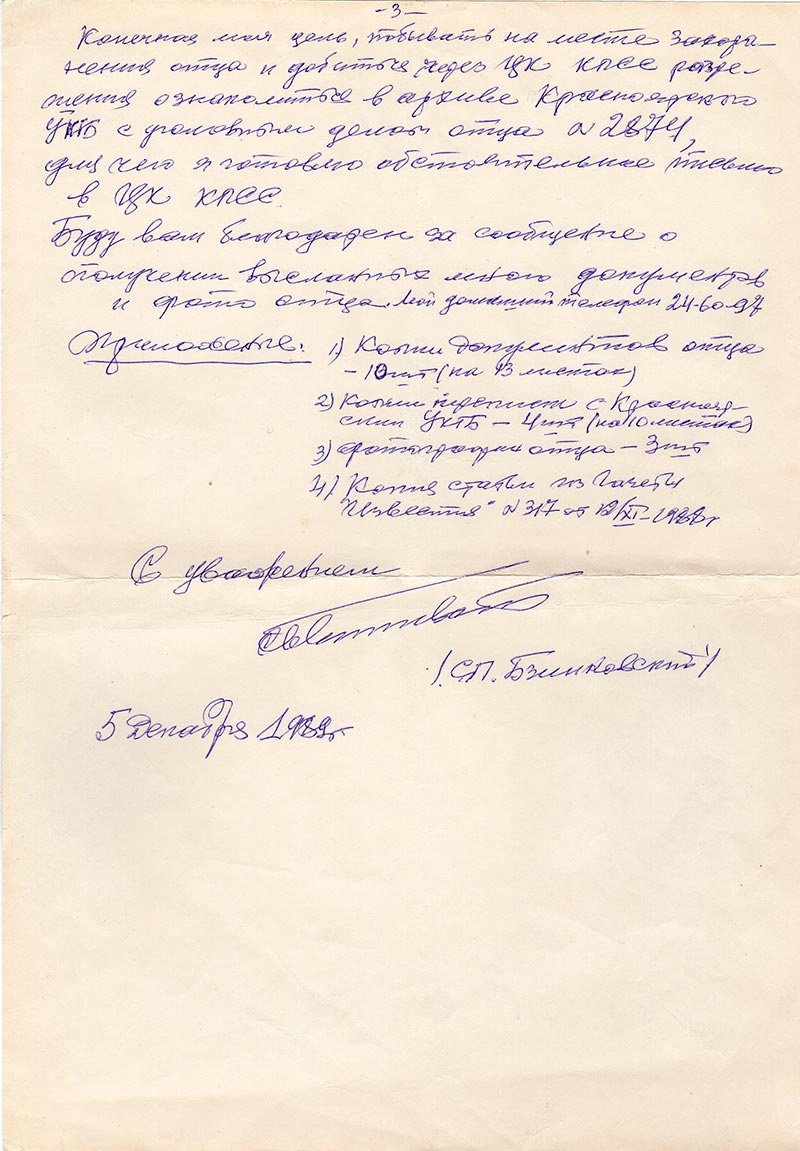 -3-
Конечная моя цель, побывать на месте захоро-
нения отца и добиться через ЦК КПСС разре-
шения ознакомиться в архиве Красноярского
УКГБ с уголовным делом отца N 2874,
для чего я готовлю обстоятельное письмо
в ЦК КПСС.
Буду вам благодарен за сообщение о
получении высланных мною документов
и фото отца. Мой домашний телефон 24-60-97
Приложение: 1) Копии документов отца
- 10 шт (на 13 листах)
2) Копии переписки с Краснояр-
ским УКГБ - 4 шт (на 10 листах)
3) фотографии отца - 3 шт
4) Копия статьи из Газеты
"Известия" N 317 от 12/XI-1988г
С уважением
/С.П. Бзинковский/
5 Декабря 1989г